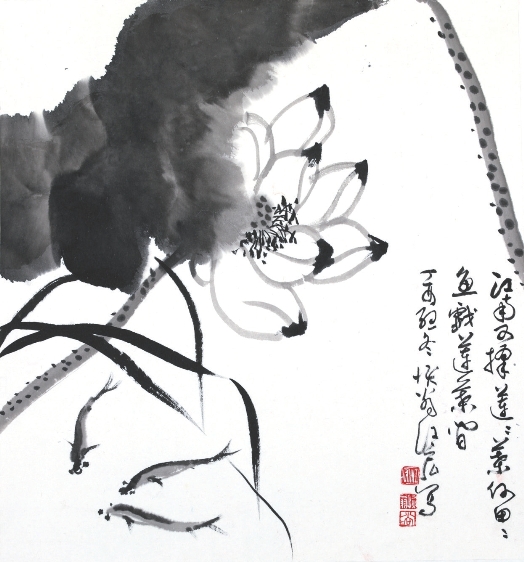 江南可採蓮蓮葉何田田
魚戲蓮葉間
丁酉冬
寫